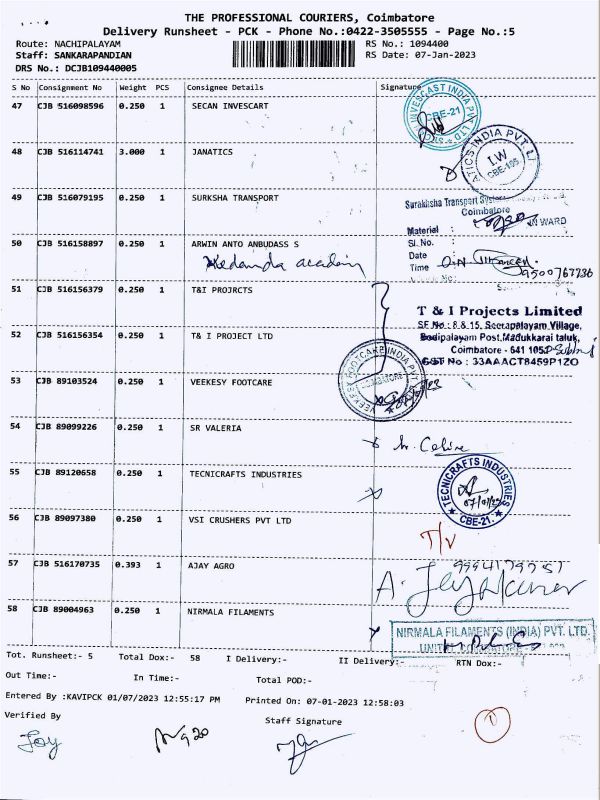 THE PROFESSIONAL COURIERS, Coimbatore
Delivery Runsheet - PCK - Phone No.:0422-3505555 - Page No.:5
Route: NACHIPALAYAM
RS No.: 1094400
Staff: SANKARAPANDIAN
RS Date: 07-Jan-2023
DRS No.: DCJB109440005
S No Consignment No Weight PCS Consignee Details Signature
47 CJB 516098596 0.250 1 SECAN INVESCART
CBE-21
48 CJB 516114741 3.000 1 JANATICS
I.W
49 CJB 516079195 0.250 1 SURKSHA TRANSPORT
Surakhsha Transport System
Coimbatore
INWARD
Material :
Sl. No. :
Date
Time
50 CJB 516158897 0.250 1 ARWIN ANTO ANBUDASS S
51 CJB 516156379 0.250 1 T&I PROJRCTS
T & I Projects Limited
SF No : 8 & 15, Seerapalayam Village,
Bodipalayam Post, Madukkarai taluk,
Coimbatore - 641 105
GST No : 33AAACT8459P1ZO
52 CJB 516156354 0.250 1 T& I PROJECT LTD
53 CJB 89103524 0.250 1 VEEKESY FOOTCARE
VEEKESY FOOTCARE INDIA PVT LTD
COIMBATORE
54 CJB 89099226 0.250 1 SR VALERIA
Sr. Celine
55 CJB 89120658 0.250 1 TECNICRAFTS INDUSTRIES
TECNICRAFTS INDUSTRIES
CBE-21.
56 CJB 89097380 0.250 1 VSI CRUSHERS PVT LTD
57 CJB 516170735 0.393 1 AJAY AGRO
58 CJB 89004963 0.250 1 NIRMALA FILAMENTS
NIRMALA FILAMENTS (INDIA) PVT. LTD.
Tot. Runsheet:- 5 Total Dox:- 58 I Delivery:- II Delivery:- RTN Dox:-
Out Time:- In Time:- Total POD:-
Entered By :KAVIPCK 01/07/2023 12:55:17 PM Printed On: 07-01-2023 12:58:03
Verified By
Staff Signature
Joy